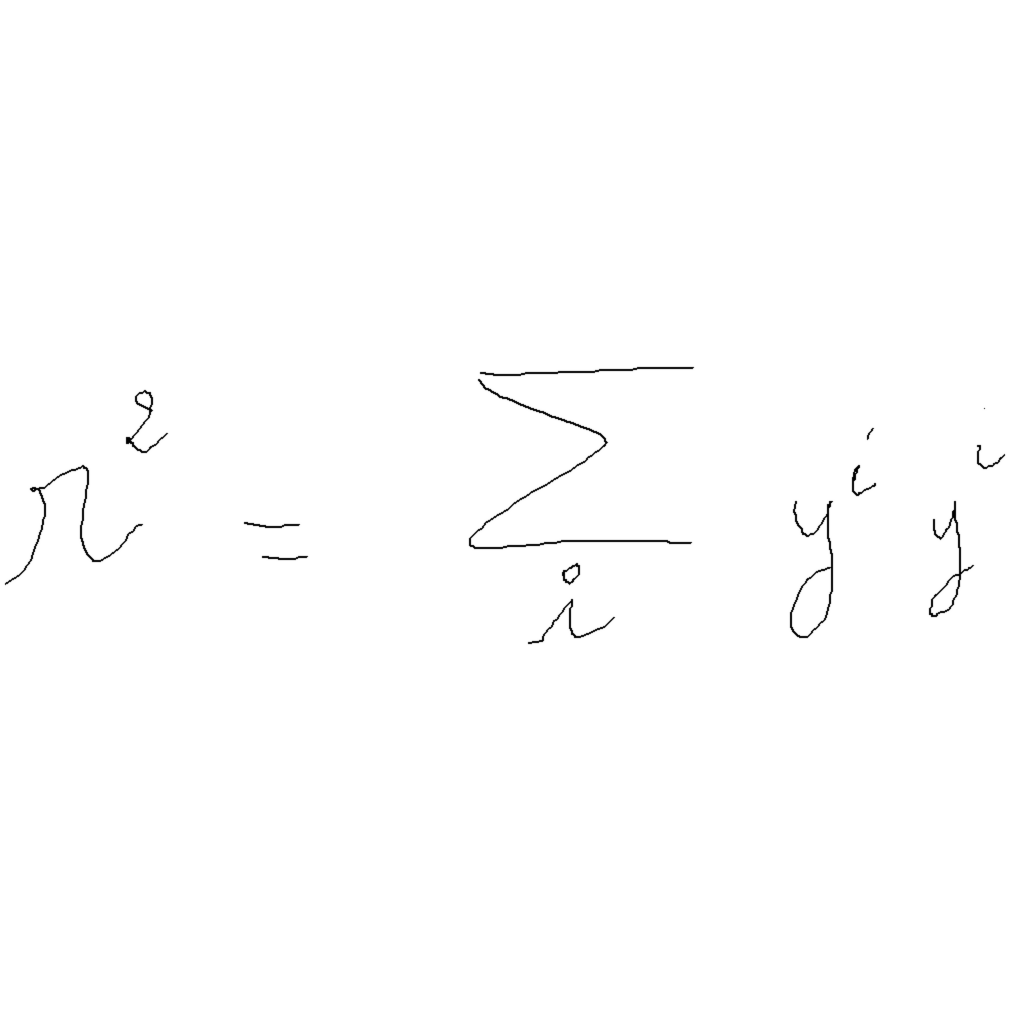 r² = ∑ᵢ yⁱ yⁱ